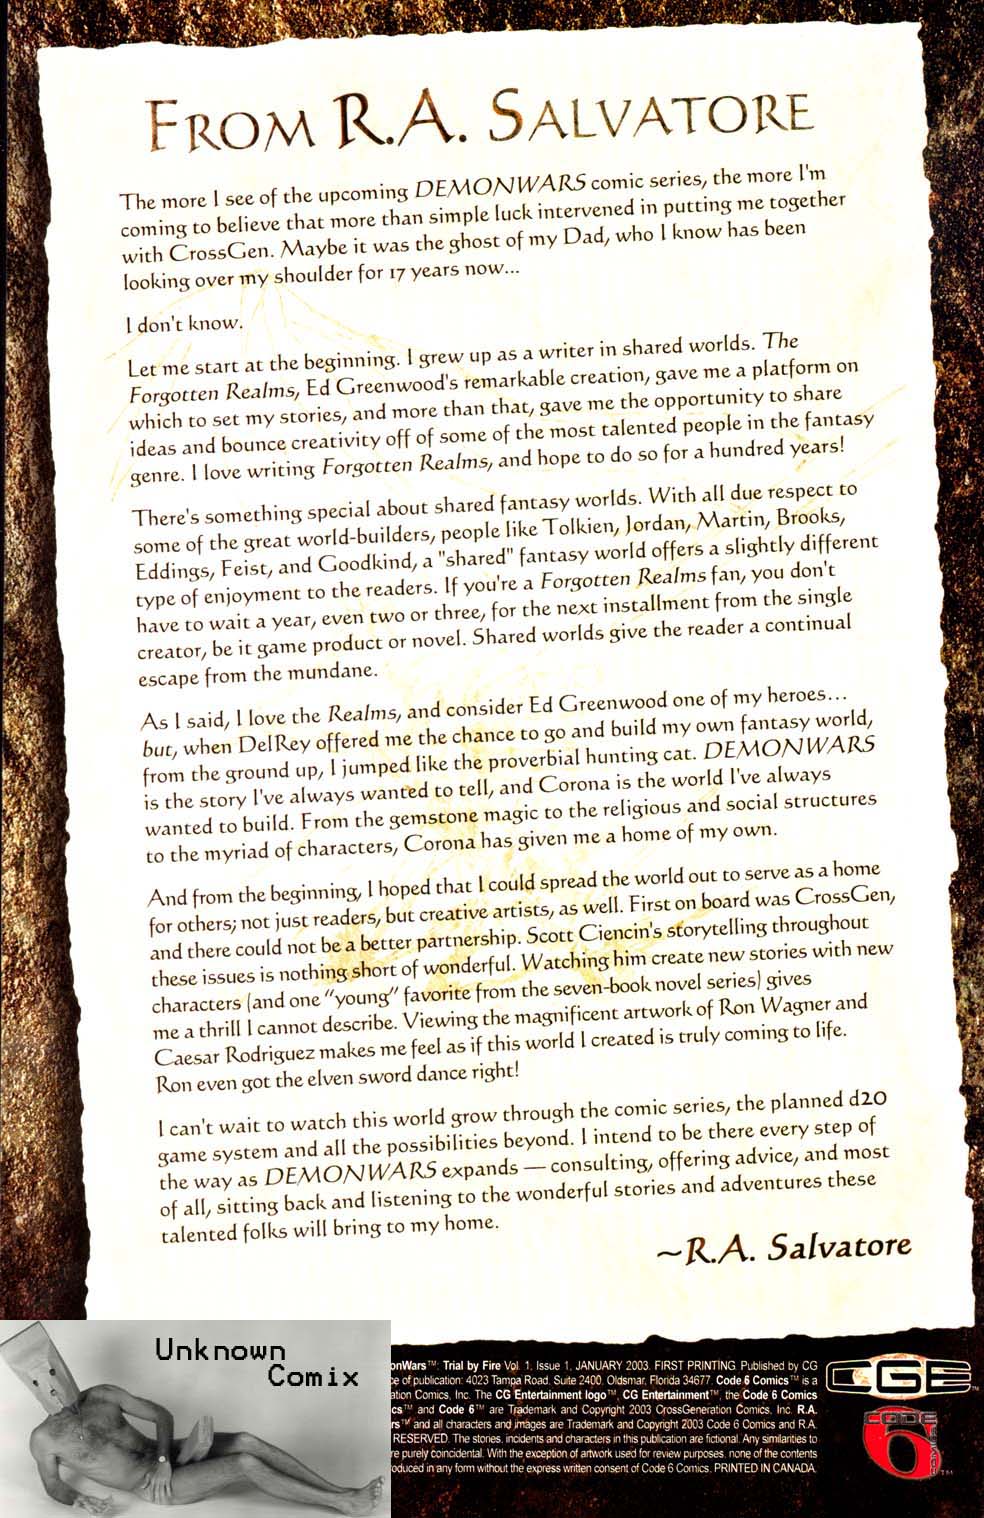 FROM R.A. SALVATORE
The more I see of the upcoming DEMONWARS comic series, the more I'm
coming to believe that more than simple luck intervened in putting me together
with CrossGen. Maybe it was the ghost of my Dad, who I know has been
looking over my shoulder for 17 years now...
I don't know.
Let me start at the beginning. I grew up as a writer in shared worlds. The
Forgotten Realms, Ed Greenwood's remarkable creation, gave me a platform on
which to set my stories, and more than that, gave me the opportunity to share
ideas and bounce creativity off of some of the most talented people in the fantasy
genre. I love writing Forgotten Realms, and hope to do so for a hundred years!
There's something special about shared fantasy worlds. With all due respect to
some of the great world-builders, people like Tolkien, Jordan, Martin, Brooks,
Eddings, Feist, and Goodkind, a "shared" fantasy world offers a slightly different
type of enjoyment to the readers. If you're a Forgotten Realms fan, you don't
have to wait a year, even two or three, for the next installment from the single
creator, be it game product or novel. Shared worlds give the reader a continual
escape from the mundane.
As I said, I love the Realms, and consider Ed Greenwood one of my heroes...
but, when DelRey offered me the chance to go and build my own fantasy world,
from the ground up, I jumped like the proverbial hunting cat. DEMONWARS
is the story I've always wanted to tell, and Corona is the world I've always
wanted to build. From the gemstone magic to the religious and social structures
to the myriad of characters, Corona has given me a home of my own.
And from the beginning, I hoped that I could spread the world out to serve as a home
for others; not just readers, but creative artists, as well. First on board was CrossGen,
and there could not be a better partnership. Scott Ciencin's storytelling throughout
these issues is nothing short of wonderful. Watching him create new stories with new
characters (and one "young" favorite from the seven-book novel series) gives
me a thrill I cannot describe. Viewing the magnificent artwork of Ron Wagner and
Caesar Rodriguez makes me feel as if this world I created is truly coming to life.
Ron even got the elven sword dance right!
I can't wait to watch this world grow through the comic series, the planned d20
game system and all the possibilities beyond. I intend to be there every step of
the way as DEMONWARS expands — consulting, offering advice, and most
of all, sitting back and listening to the wonderful stories and adventures these
talented folks will bring to my home.
~R.A. Salvatore
Unknown
Comix
onWars™: Trial by Fire Vol. 1, Issue 1, JANUARY 2003. FIRST PRINTING. Published by CG
ce of publication: 4023 Tampa Road, Suite 2400, Oldsmar, Florida 34677. Code 6 Comics™ is a
ation Comics, Inc. The CG Entertainment logo™, CG Entertainment™, the Code 6 Comics
cs™ and Code 6™ are Trademark and Copyright 2003 CrossGeneration Comics, Inc. R.A.
rs™ and all characters and images are Trademark and Copyright 2003 Code 6 Comics and R.A.
RESERVED. The stories, incidents and characters in this publication are fictional. Any similarities to
re purely coincidental. With the exception of artwork used for review purposes, none of the contents
oduced in any form without the express written consent of Code 6 Comics. PRINTED IN CANADA.
CGE™
CODE
6
COMICS
™